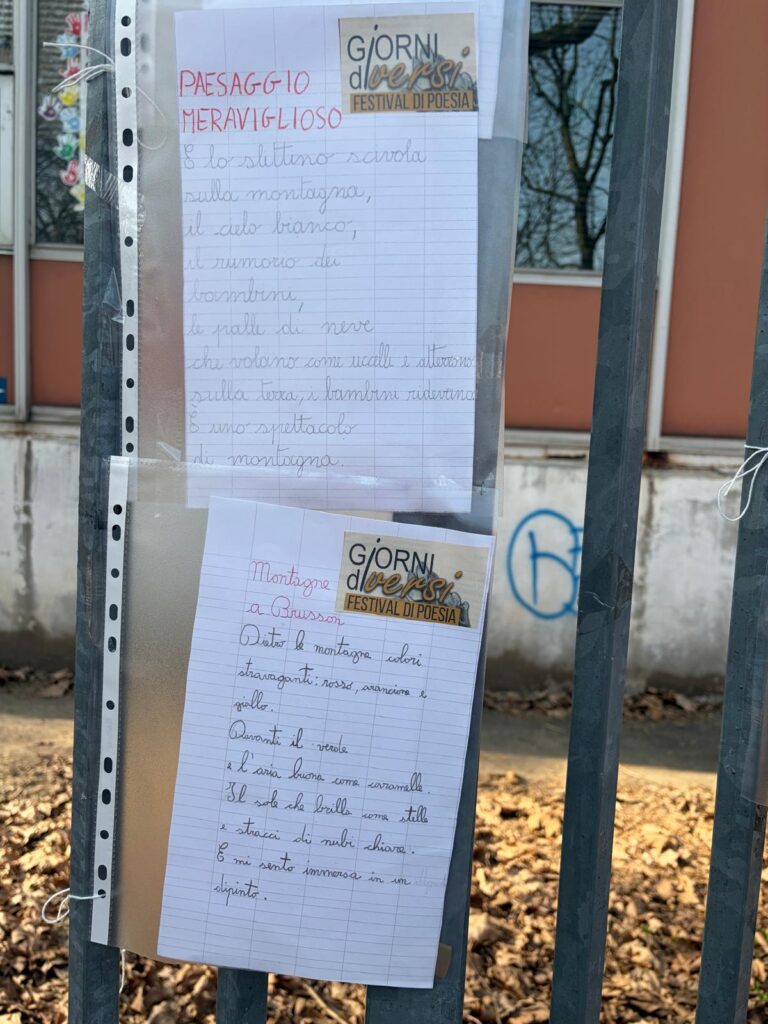 GiORNI
diversi
FESTIVAL DI POESIA
PAESAGGIO
MERAVIGLIOSO
E lo slittino scivola
sulla montagna,
il cielo bianco,
il rumorio dei
bambini,
le palle di neve
che volano come uccelli e atterrano
sulla terra, i bambini ridevano
È uno spettacolo
di montagna.
GiORNI
diversi
FESTIVAL DI POESIA
Montagne
a Brusson
Dietro le montagne colori
stravaganti: rosso, arancione e
giallo.
Davanti il verde
e l'aria buona come caramelle.
Il sole che brilla come stelle
e stracci di nubi chiare.
E mi sento immersa in un
dipinto.